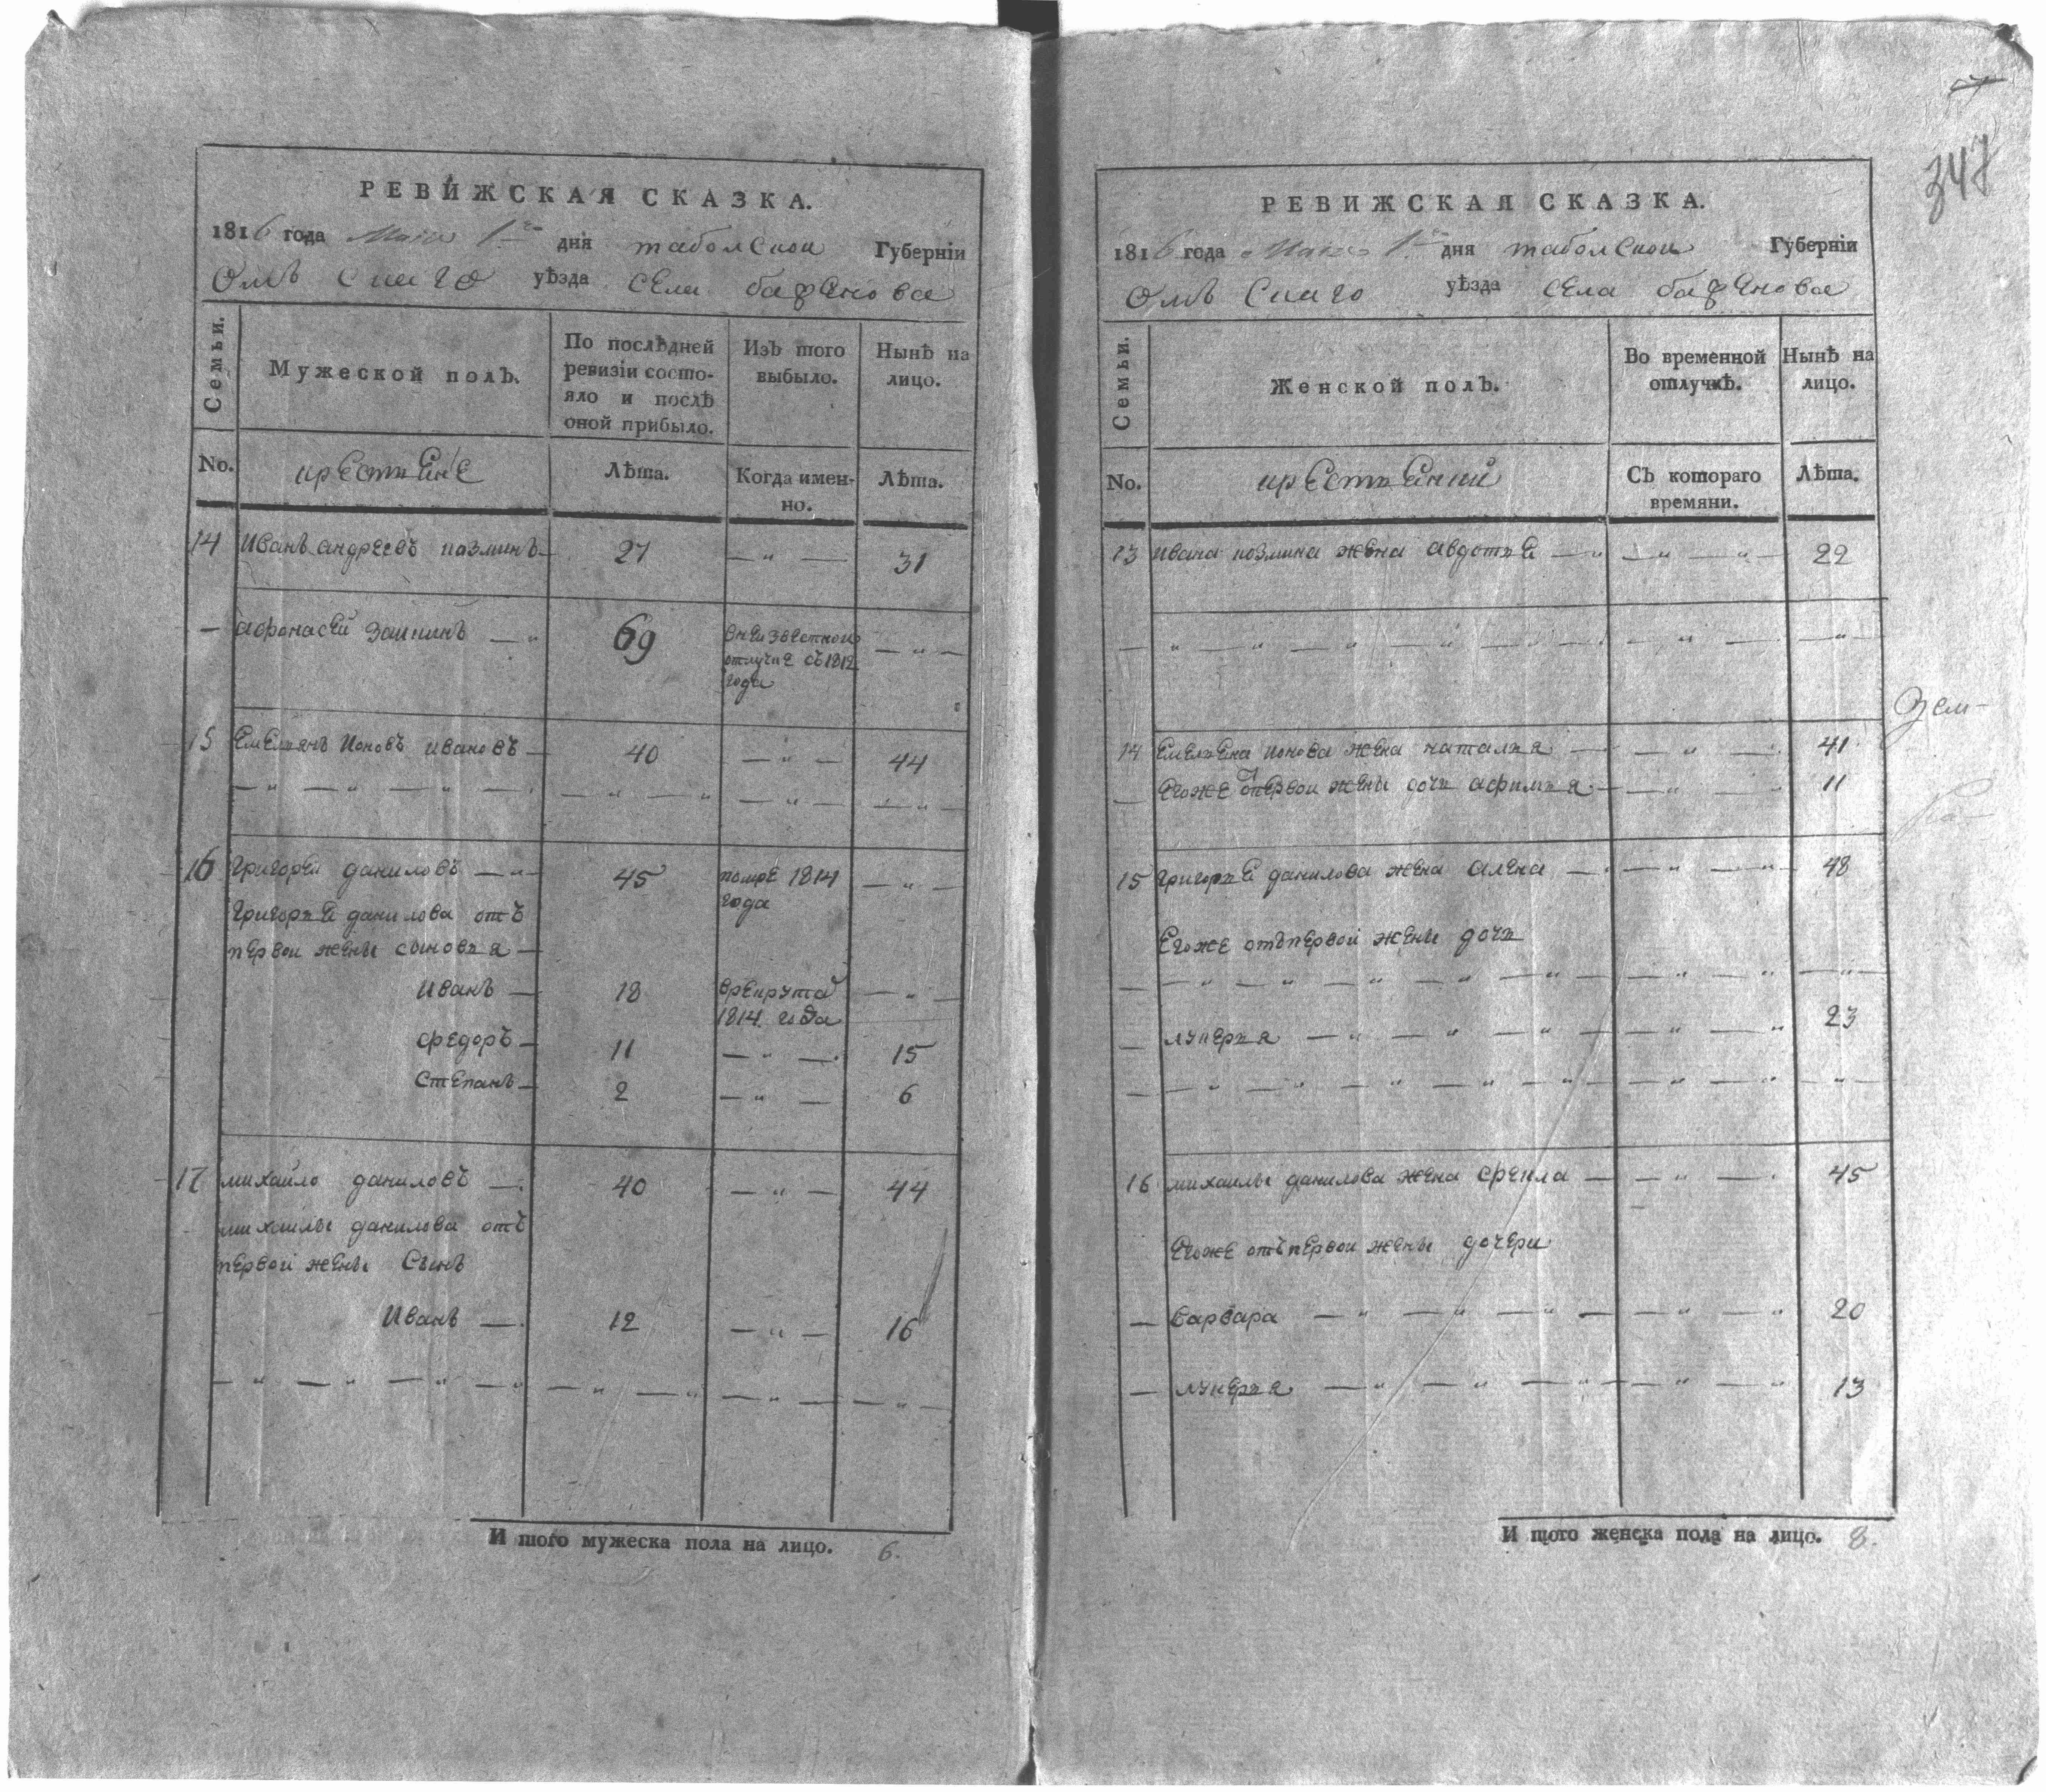 РЕВИЖСКАЯ СКАЗКА.
1816 года Маия 1го дня таболской Губерніи
Омъ скаго уѣзда села баженова
Семьи.
Мужеской полъ.
По послѣдней ревизіи состо-
яло и послѣ
оной прибыло.
Изъ того
выбыло.
Нынѣ на
лицо.
No.
крестьяне
Лѣта.
Когда имен-
но.
Лѣта.
14 Иванъ андреевъ козминъ 27 — " — 31
— афонасей заикинъ — " 69 внеизвестной — " —
отлучке съ 1812
года
15 Емельянъ Ионовъ ивановъ — 40 — " — 44
— " — " — " — " — " — " — " — — " —
16 григорей даниловъ — " — 45 помре 1814 — " —
года
григорья данилова отъ
первой жены сыновья —
Иванъ — 18 врекрута — " —
1814 года
федоръ — 11 — " — 15
Степанъ — 2 — " — 6
17 михайло даниловъ — 40 — " — 44
михайлы данилова отъ
первой жены Сынъ
Иванъ — 12 — " — 16
— " — " — " — " — " — " — " — — " —
И того мужеска пола на лицо. 6.
347
РЕВИЖСКАЯ СКАЗКА.
1816 года Маия 1го дня таболской Губерніи
Омъ скаго уѣзда села баженова
Семьи.
Женской полъ.
Во временной
отлучкѣ.
Нынѣ на
лицо.
No.
крестьянки
Съ котораго
времяни.
Лѣта.
13 ивана козмина жена авдотья — " — " — " — 22
— " — " — " — " — " — " — — " —
Зем-
14 Емельяна ионова жена наталья — — " — 41
— Егоже отпервой жены дочь афимья — — " — 11
15 григорья данилова жена алена — — " — " 48
Егоже отъпервой жены дочь
— — " — " — " — " — " — " — " — " —
— лукерья — " — " — " — — " — " 23
— — " — " — " — " — " — " — " — " —
16 михайлы данилова жена фекла — — " — 45
Егоже отъпервой жены дочери
— варвара — " — " — " — — " — " 20
— лукерья — " — " — " — — " — " 13
И того женска пола на лицо. 8.